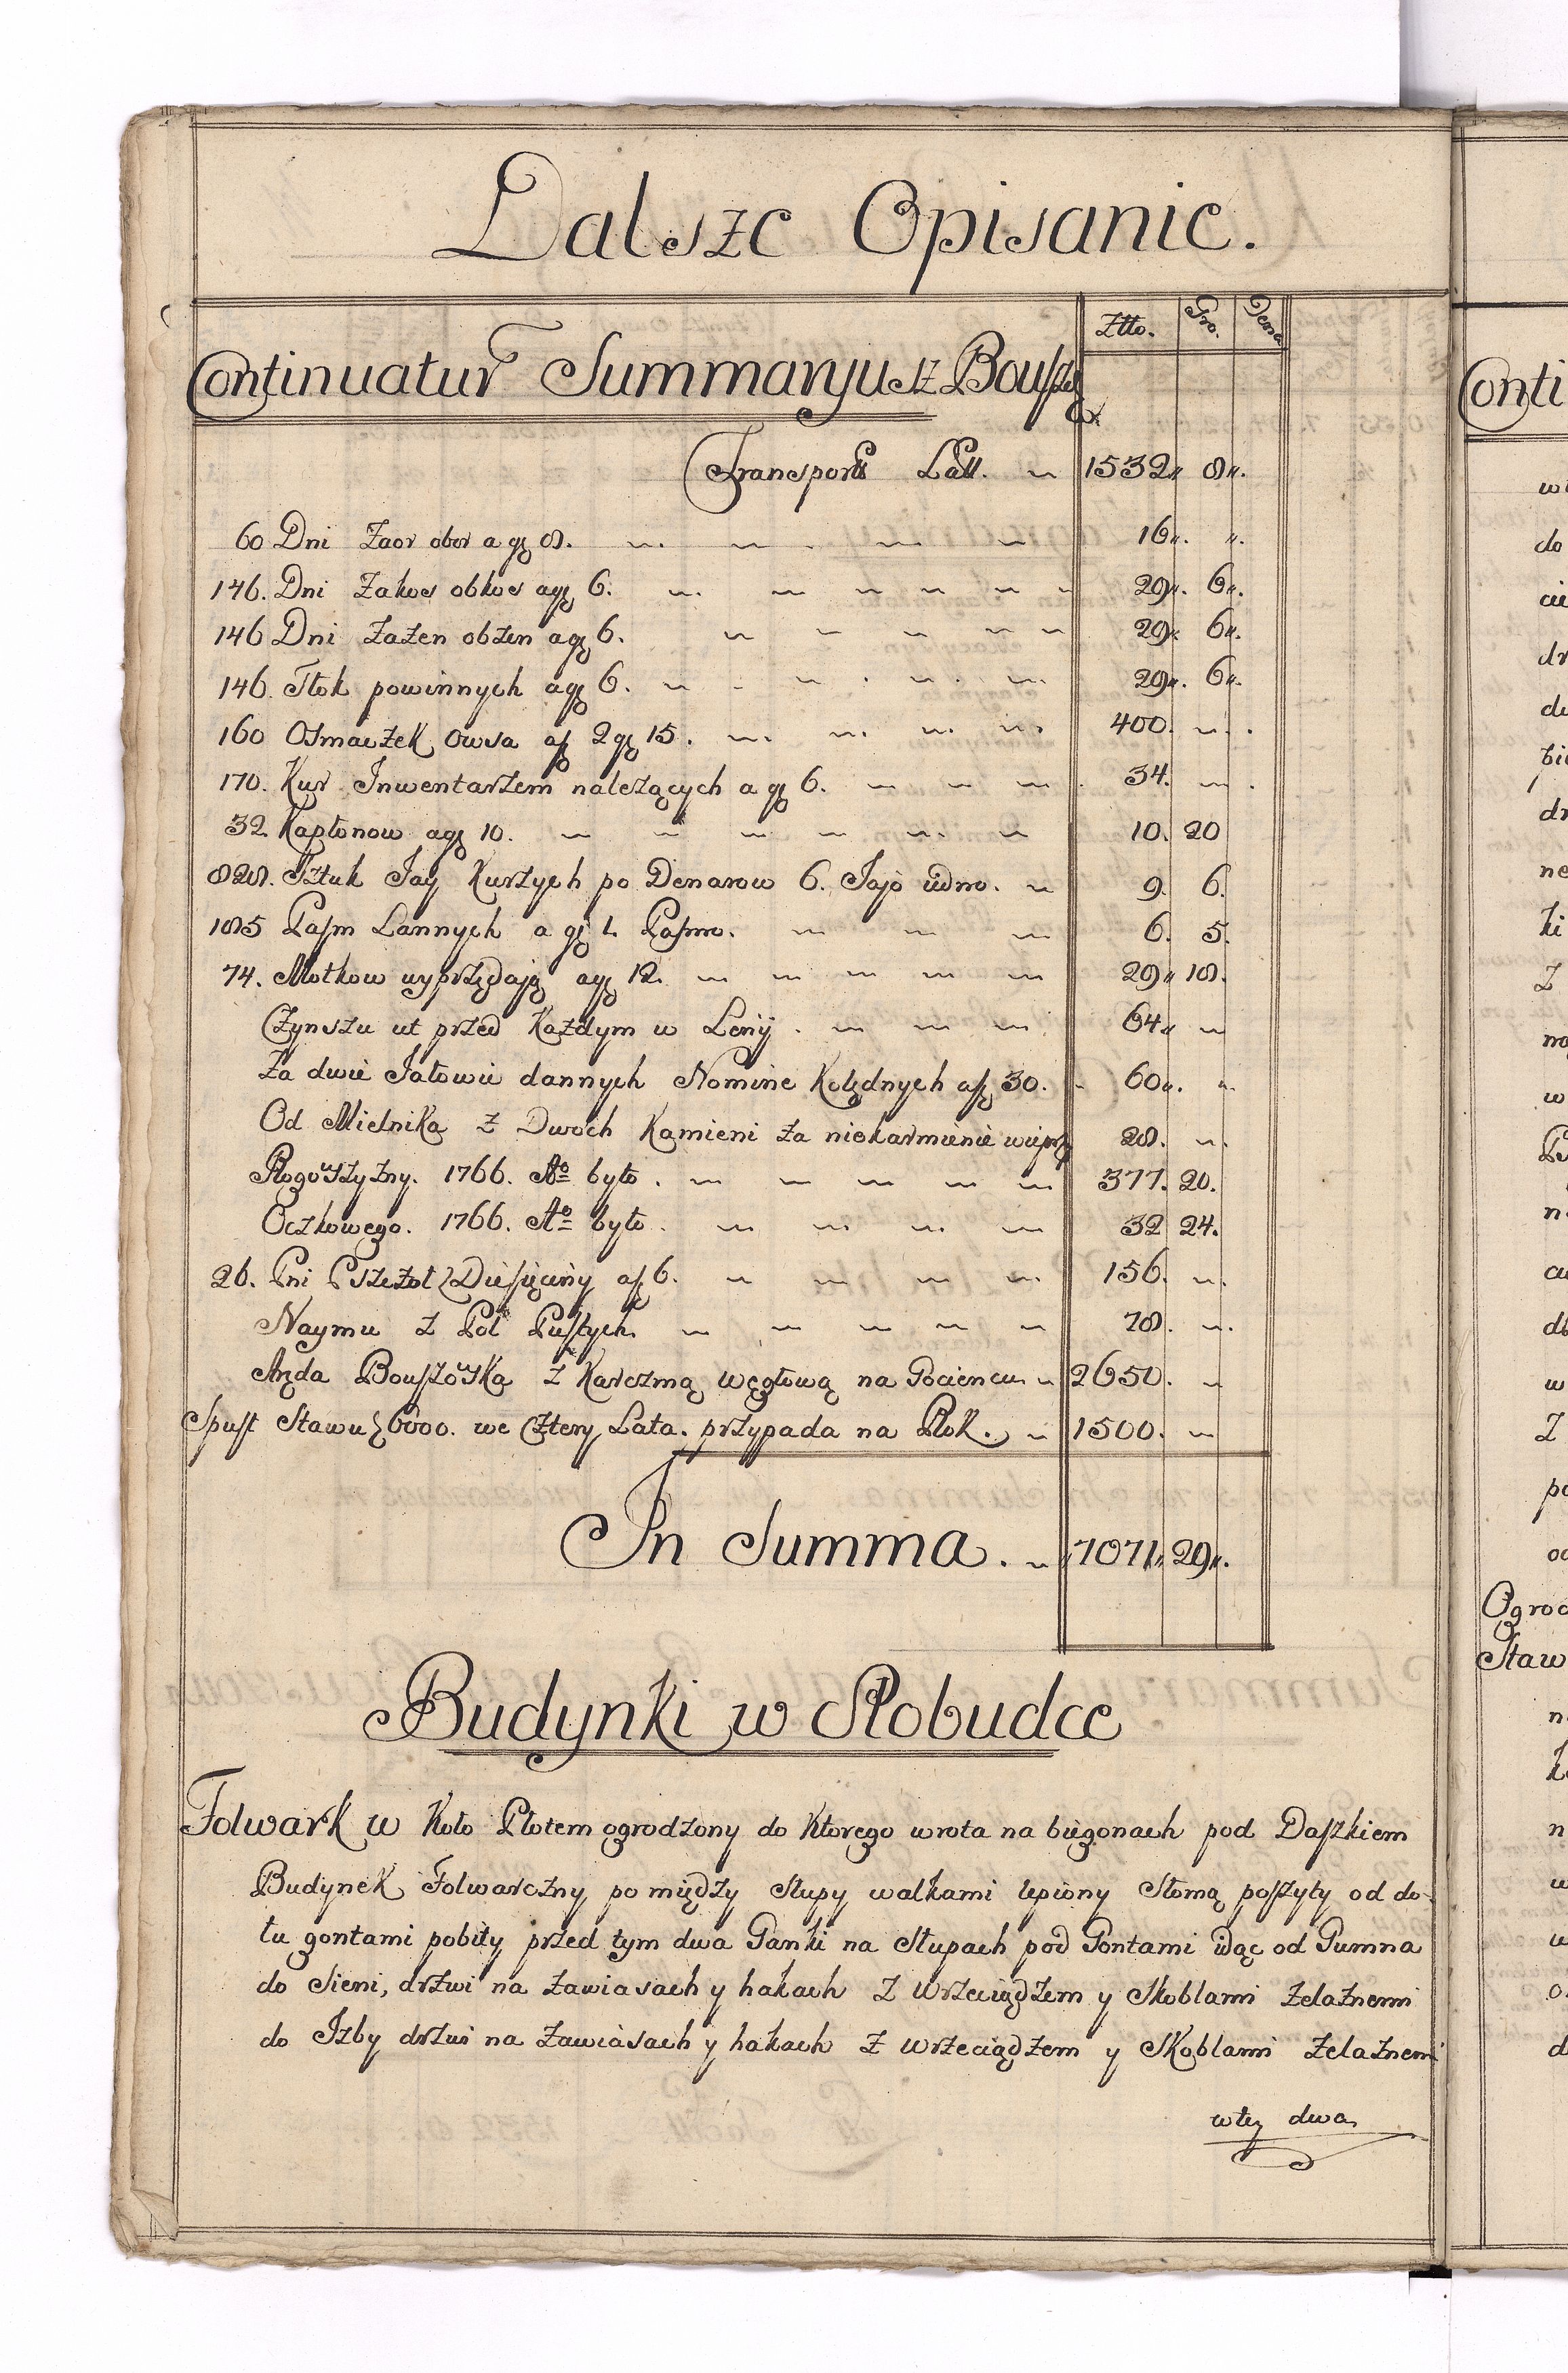 Dalsze Opisanie.
Złło. Gro. Dena
Continuatur Summaryusz Bouszy
Transport Latt. 1532 8.
60 Dni Zaor obor a gę 8. 16.
146. Dni Zakos obkos a gę 6. 29. 6.
146 Dni Zażen obżen a gę 6. 29. 6.
146. Tłok powinnych a gę 6. 29. 6.
160 Osmaczek Owsa af 2 gę 15. 400.
170. Kur Inwentarzem należących a gę 6. 34.
32 Kapłonow a gę 10. 10. 20
828. Sztuk Jay Kurzych po Denarow 6. Jajo iedno. 9. 6.
185 Pasm Lannych a gę 1. Pasmo. 6. 5.
74. Motkow wyprzędają a gę 12. 29 18.
Czynszu ut przed Każdym w Leny. 64
Za dwie Jałowie dannych Nomine Kolędnych af 30. 60.
Od Mielnika z Dwoch Kamieni za niekarmienie wieprz 28.
Rogowszyzny. 1766. Ao było. 377. 20.
Oczkowego. 1766. Ao było. 32 24.
26. Pni Pszczoł Diesięciny af 6. 156.
Naymu z Pol Pustych. 78.
Aręda Bouszowska z Karczmą węgłową na Pociencu 2650.
Spust Stawu 6000. we Cztery Lata. przypada na Rok. 1500.
In Summa. 7071 29.
Budynki w Słobudce
Folwark w Koło Płotem ogrodzony do Ktorego wrota na biegonach pod Daszkiem
Budynek Folwarczny pomiędzy Słupy walkami lepiony Słomą poszyty od do-
łu gontami pobity przed tym dwa Ganki na Słupach pod Gontami idąc od Gumna
do Sieni, drzwi na zawiasach y hakach z Wrzeciądzem y Skoblami żelaznemi
do Izby drzwi na zawiasach y hakach z wrzeciądzem y Skoblami żelaznemi
w tey dwa
Conti
w
do
cie
dr
de
pie
dr
ne
ki
z
no
w
n
cu
db
w
z
po
od
Ogrod
Staw
n
k
n
w
u
o
d